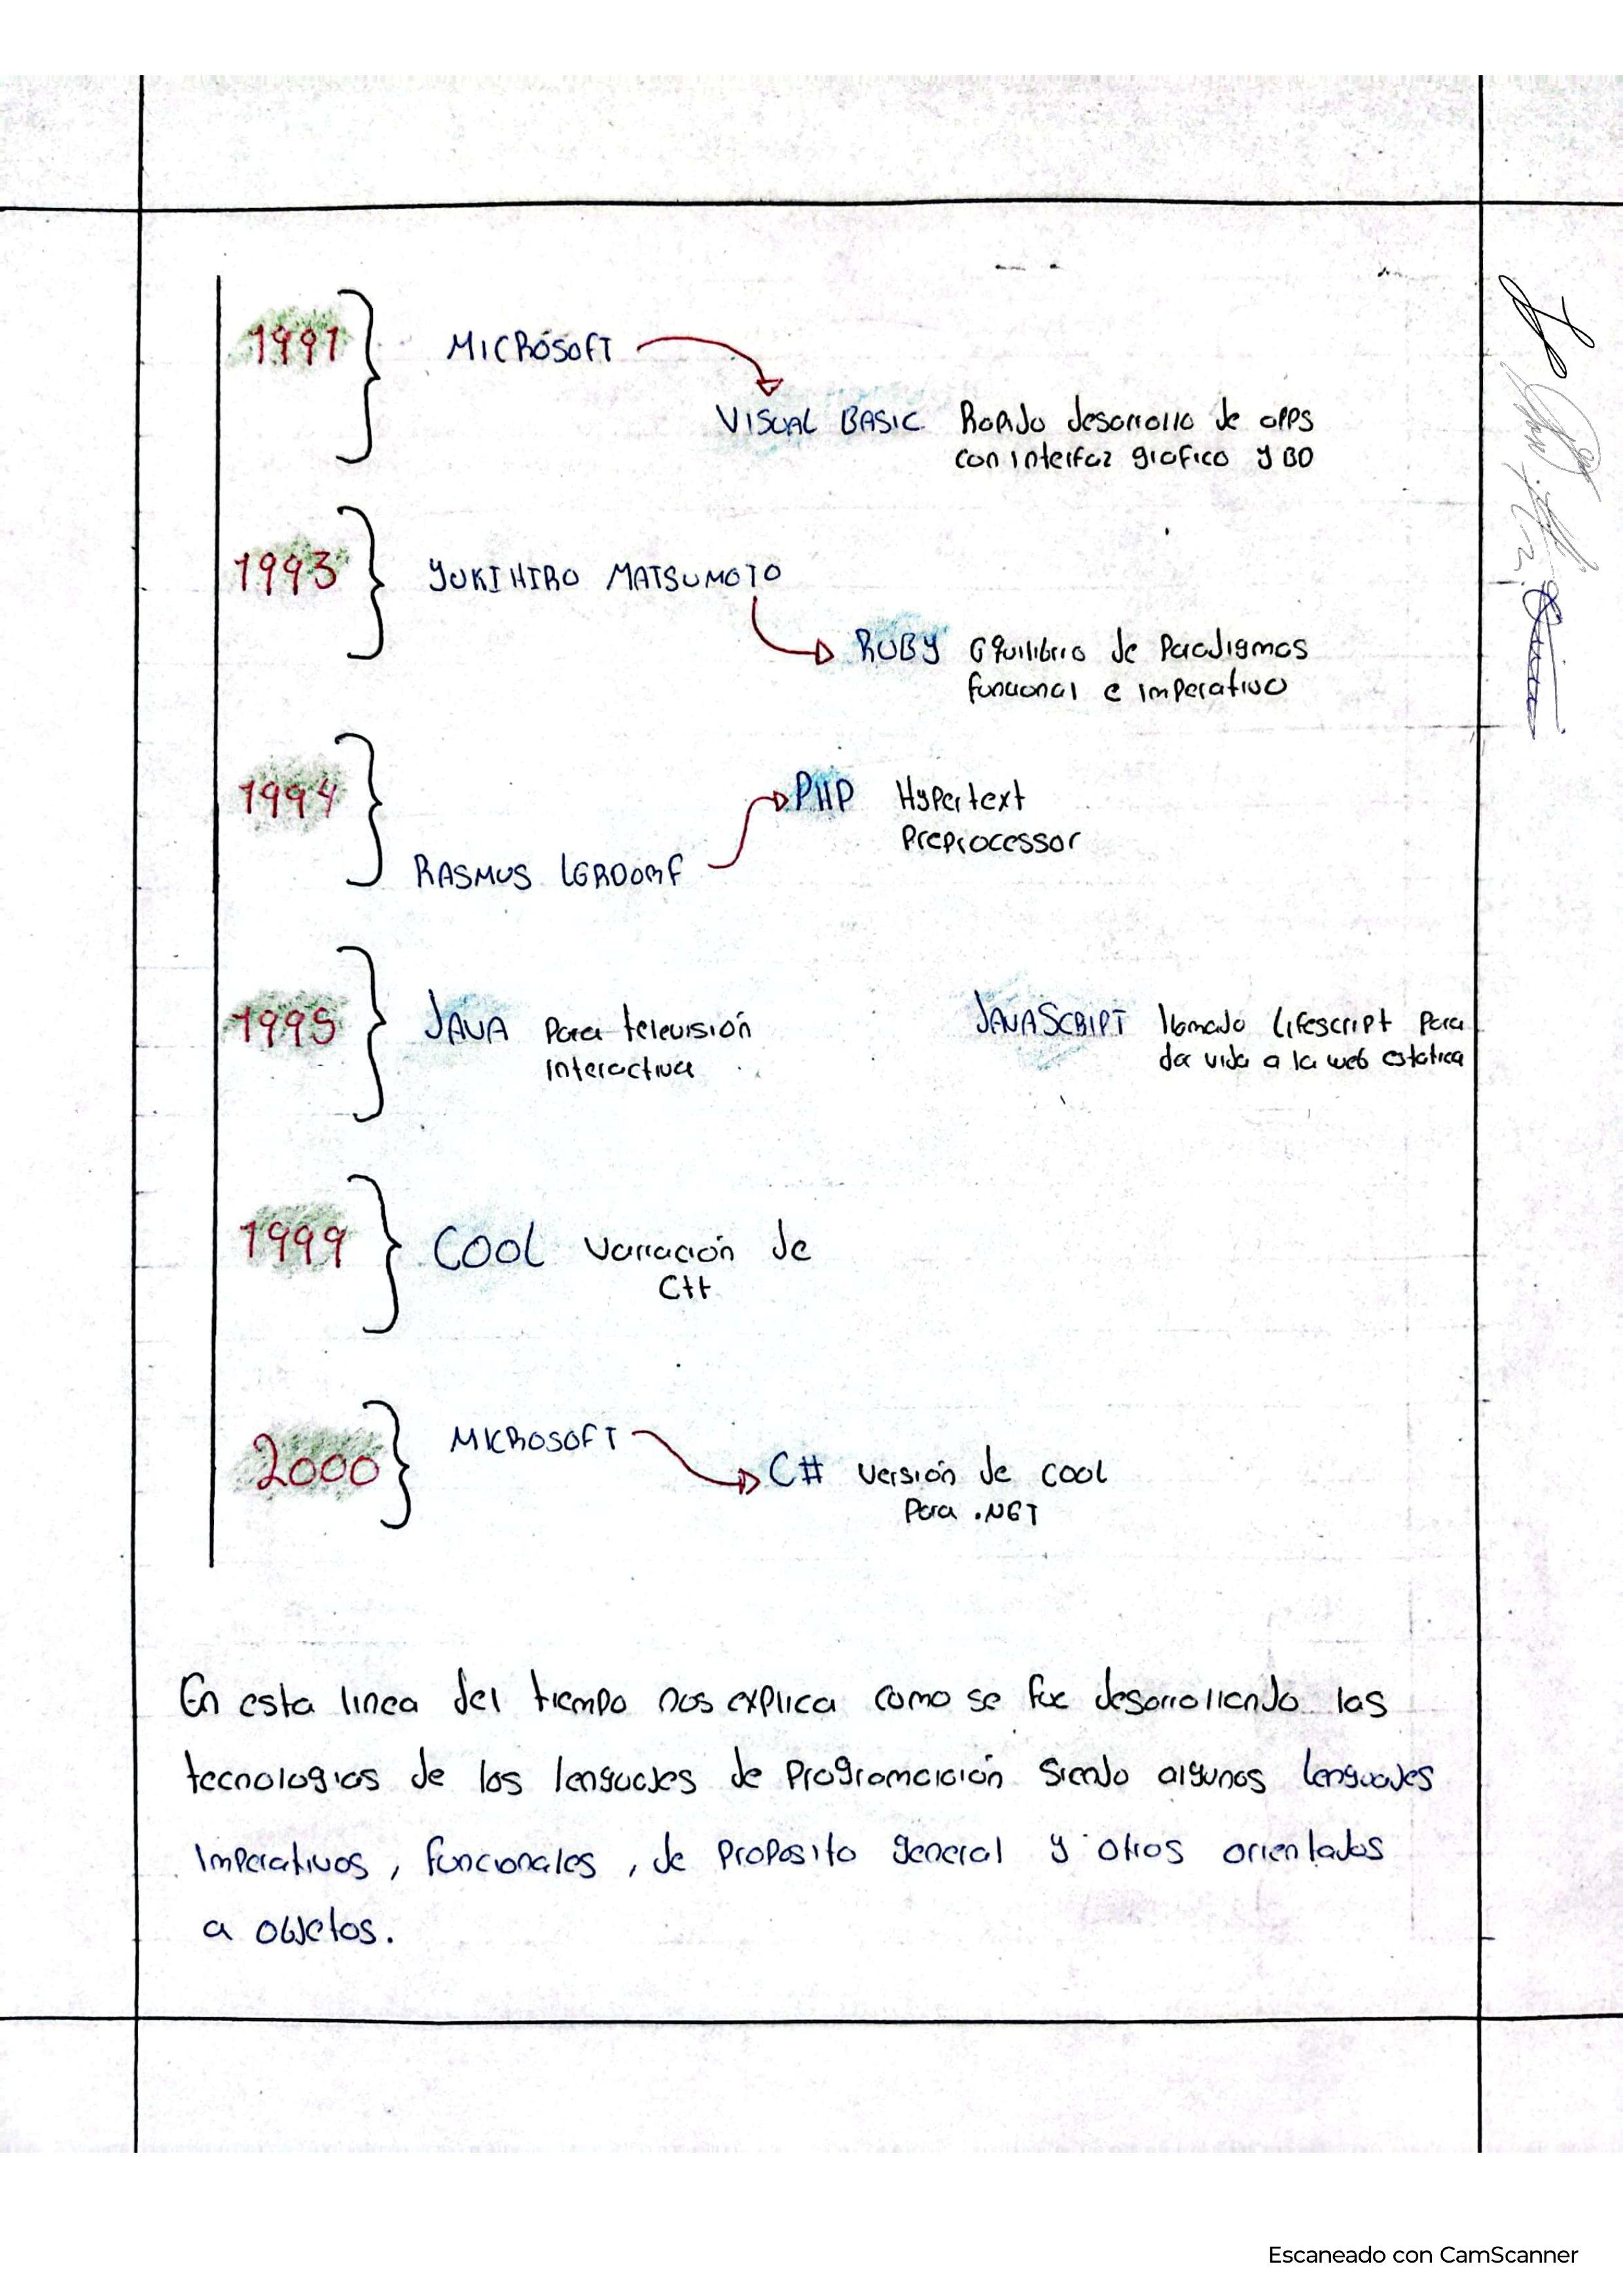 1991
MICROSOFT
VISUAL BASIC Rapido desarrollo de apps
con interfaz grafico y BD
1993
YUKIHIRO MATSUMOTO
RUBY Equilibrio de Paradigmas
funcional e imperativo
1994
PHP Hypertext
Preprocessor
RASMUS LERDORF
1995
JAVA para televisión
interactiva
JAVASCRIPT llamado Lifescript para
dar vida a la web estatica
1999
COOL Variación de
C++
2000
MICROSOFT
C# versión de COOL
Para .NET
En esta linea del tiempo nos explica como se fue desarrollando las
tecnologias de los lenguajes de Programación siendo algunos lenguajes
imperativos, funcionales, de proposito general y otros orientados
a objetos.
Escaneado con CamScanner